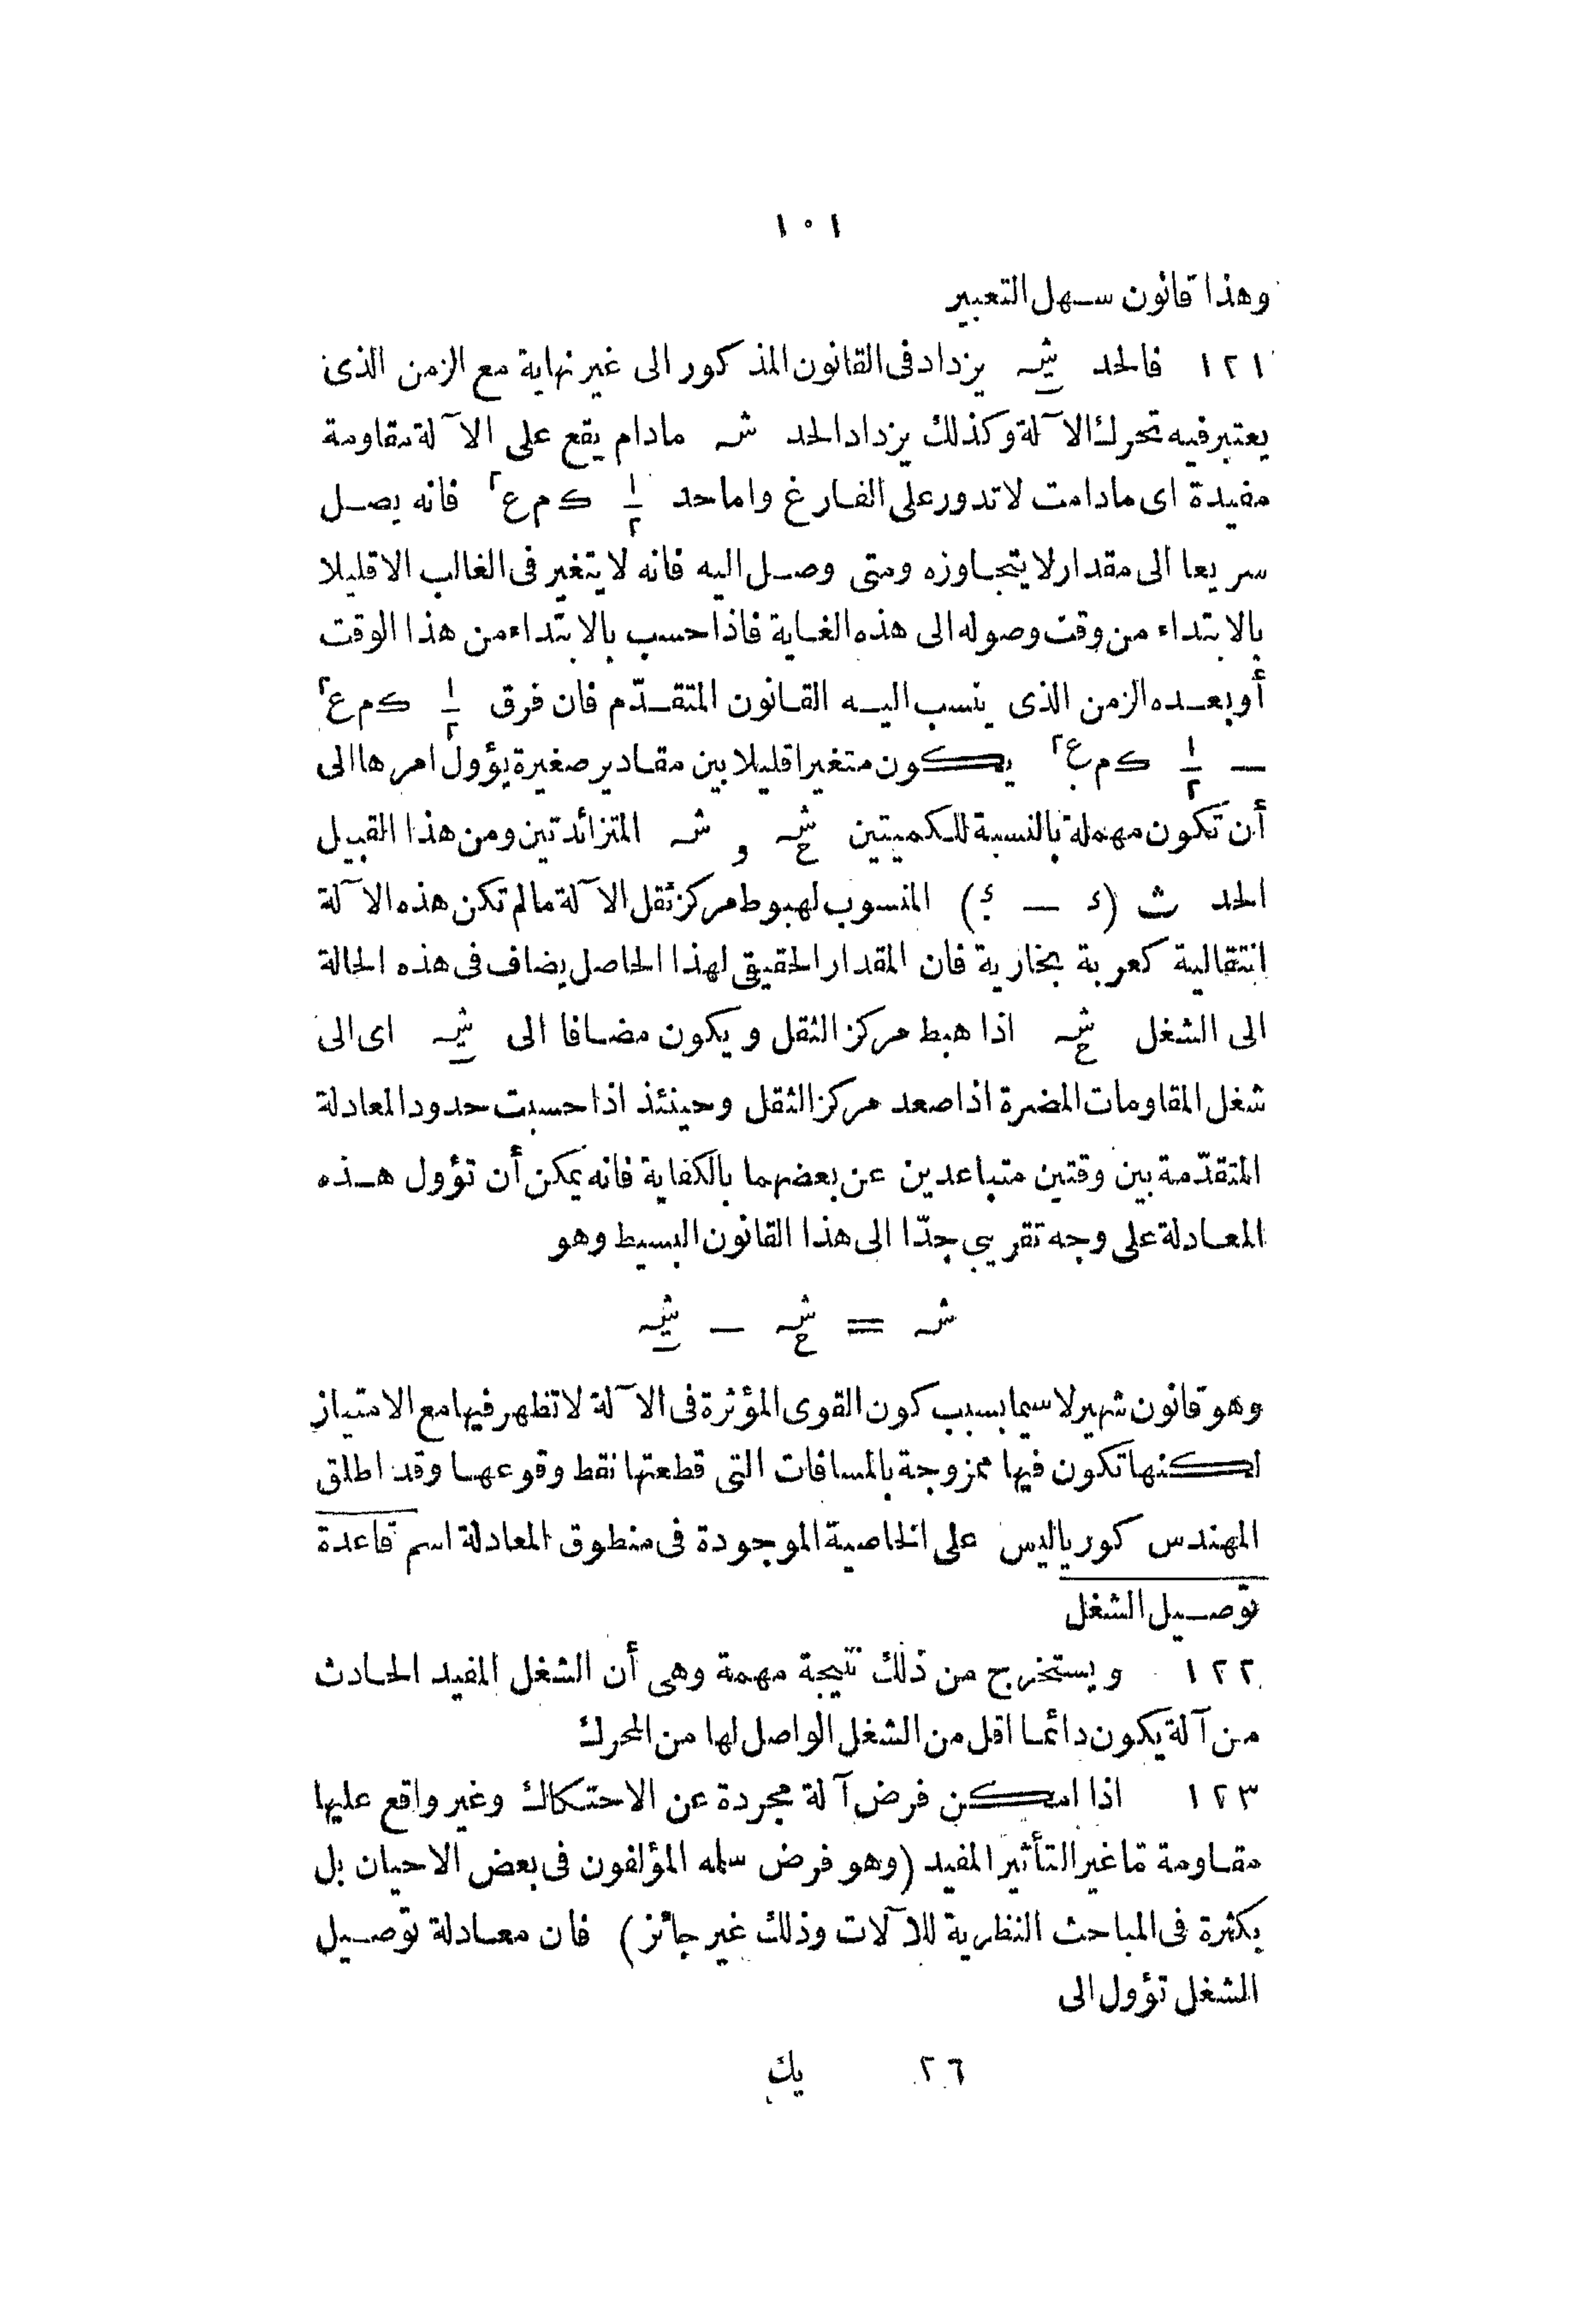 ١٠١
وهذا قانون سهل التعبير
١٢١ فالحد شـ يزداد فى القانون المذكور الى غير نهاية مع الزمن الذى
يعتبر فيه تحرك الآلة وكذلك يزداد الحد شـ مادام يقع على الآلة مقاومة
مفيدة اى مادامت لاتدور على الفارغ واما حد ١/٢ ك م ع٢ فانه يصل
سريعا الى مقدار لا يتجاوزه ومتى وصل اليه فانه لا يتغير فى الغالب الاقليلا
بالابتداء من وقت وصوله الى هذه الغاية فاذا حسب بالابتداء من هذا الوقت
أو بعده الزمن الذى ينسب اليه القانون المتقدّم فان فرق ١/٢ ك م ع٢
— ١/٢ ك م ع٢ يكون متغيرا قليلا بين مقادير صغيرة يؤول امرها الى
أن تكون مهملة بالنسبة للكميتين شـ و شـ المتزائدتين ومن هذا القبيل
الحد ث (ء — ء) المنسوب لهبوط مركز ثقل الآلة مالم تكن هذه الآلة
انتقالية كعربة بخارية فان المقدار الحقيقى لهذا الحاصل يضاف فى هذه الحالة
الى الشغل شـ اذا هبط مركز الثقل ويكون مضافا الى شـ اى الى
شغل المقاومات المضرة اذا صعد مركز الثقل وحينئذ اذا حسبت حدود المعادلة
المتقدّمة بين وقتين متباعدين عن بعضهما بالكفاية فانه يمكن أن تؤول هذه
المعادلة على وجه تقريبى جدّا الى هذا القانون البسيط وهو
شـ = شـ — شـ
وهو قانون شهير لاسيما بسبب كون القوى المؤثرة فى الآلة لا تظهر فيها مع الامتياز
لكنها تكون فيها ممزوجة بالمسافات التى قطعتها نقط وقوعها وقد اطلق
المهندس كورياليس على الخاصية الموجودة فى منطوق المعادلة اسم قاعدة
توصيل الشغل
١٢٢ ويستخرج من ذلك نتيجة مهمة وهى أن الشغل المفيد الحادث
من آلة يكون دائما اقل من الشغل الواصل لها من المحرك
١٢٣ اذا امكن فرض آلة مجردة عن الاحتكاك وغير واقع عليها
مقاومة مّا غير التأثير المفيد (وهو فرض سلمه المؤلفون فى بعض الاحيان بل
بكثرة فى المباحث النظرية للآلات وذلك غير جائز) فان معادلة توصيل
الشغل تؤول الى
٢٦ يك